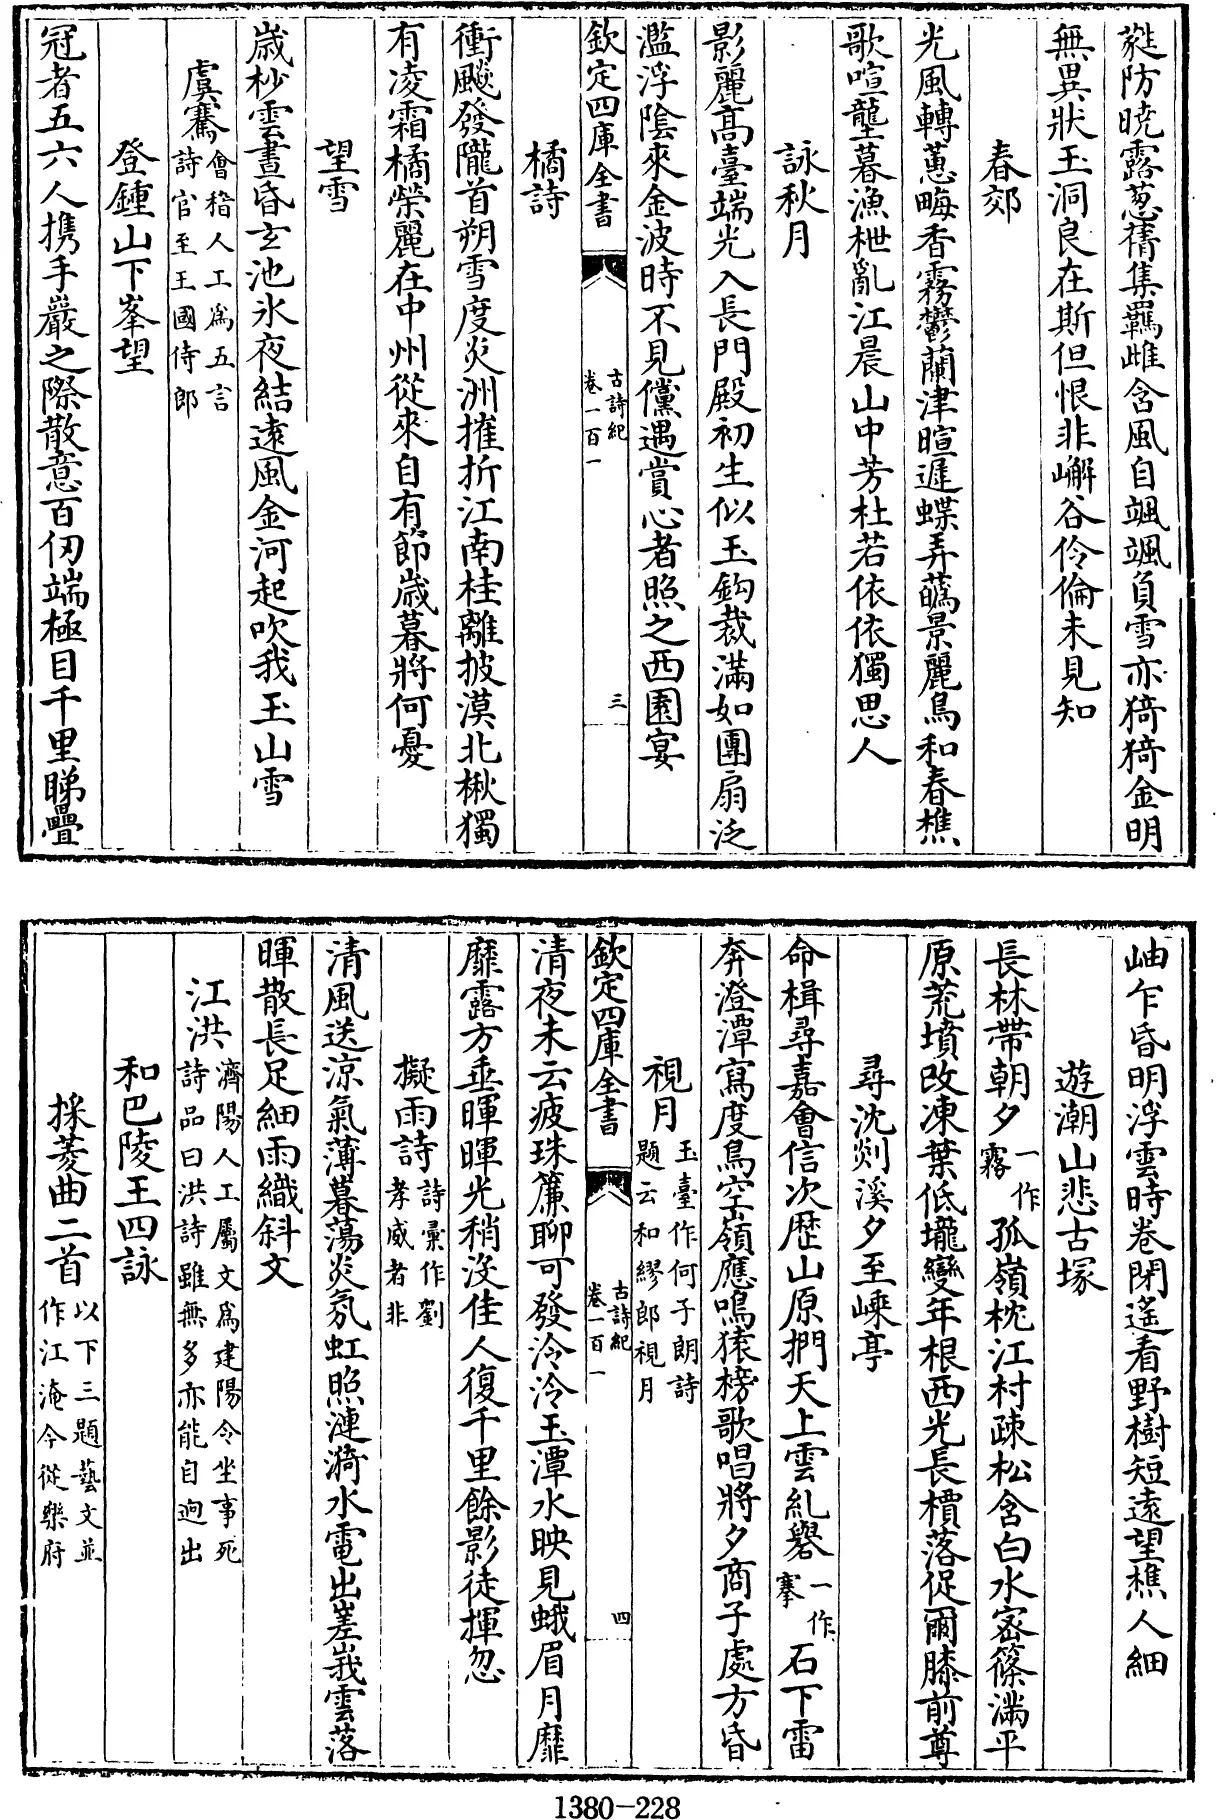 蕤防曉露葱蒨集羈雌含風自颯颯負雪亦猗猗金明
無異狀玉洞良在斯但恨非嶰谷伶倫未見知
春郊
光風轉蕙畮香霧鬱蘭津暄遲蝶弄蘤景麗鳥和春樵
歌喧壟暮漁枻亂江晨山中芳杜若依依獨思人
詠秋月
影麗高臺端光入長門殿初生似玉鈎裁滿如團扇泛
濫浮陰來金波時不見儻遇賞心者照之西園宴
欽定四庫全書
古詩紀
卷一百一
三
橘詩
衝飈發隴首朔雪度炎洲摧折江南桂離披漠北楸獨
有凌霜橘榮麗在中州從來自有節歲暮將何憂
望雪
歲杪雲晝昏玄池氷夜結遠風金河起吹我玉山雪
虞騫會稽人工為五言
詩官至王國侍郎
登鍾山下峯望
冠者五六人携手巖之際散意百仞端極目千里睇疊
岫乍昏明浮雲時卷閉遙看野樹短遠望樵人細
遊潮山悲古冢
長林帶朝夕一作霧孤嶺枕江村疎松含白水密篠滿平
原荒墳改凍葉低壠變年根西光長檟落促爾膝前尊
尋沈剡溪夕至嵊亭
命楫尋嘉會信次歴山原捫天上雲糺礐一作搴石下雷
奔澄潭寫度鳥空嶺應鳴猿榜歌唱將夕商子處方昏
視月玉臺作何子朗詩
題云和繆郎視月
欽定四庫全書
古詩紀
卷一百一
四
清夜未云疲珠簾聊可發泠泠玉潭水映見蛾眉月靡
靡露方垂暉暉光稍沒佳人復千里餘影徒揮忽
擬雨詩詩彙作劉
孝威者非
清風送凉氣薄暮蕩炎氛虹照漣漪水電出嵳峩雲落
暉散長足細雨織斜文
江洪濟陽人工屬文為建陽令坐事死
詩品曰洪詩雖無多亦能自逈出
和巴陵王四詠
採菱曲二首以下三題藝文並
作江淹今從樂府
1380—228